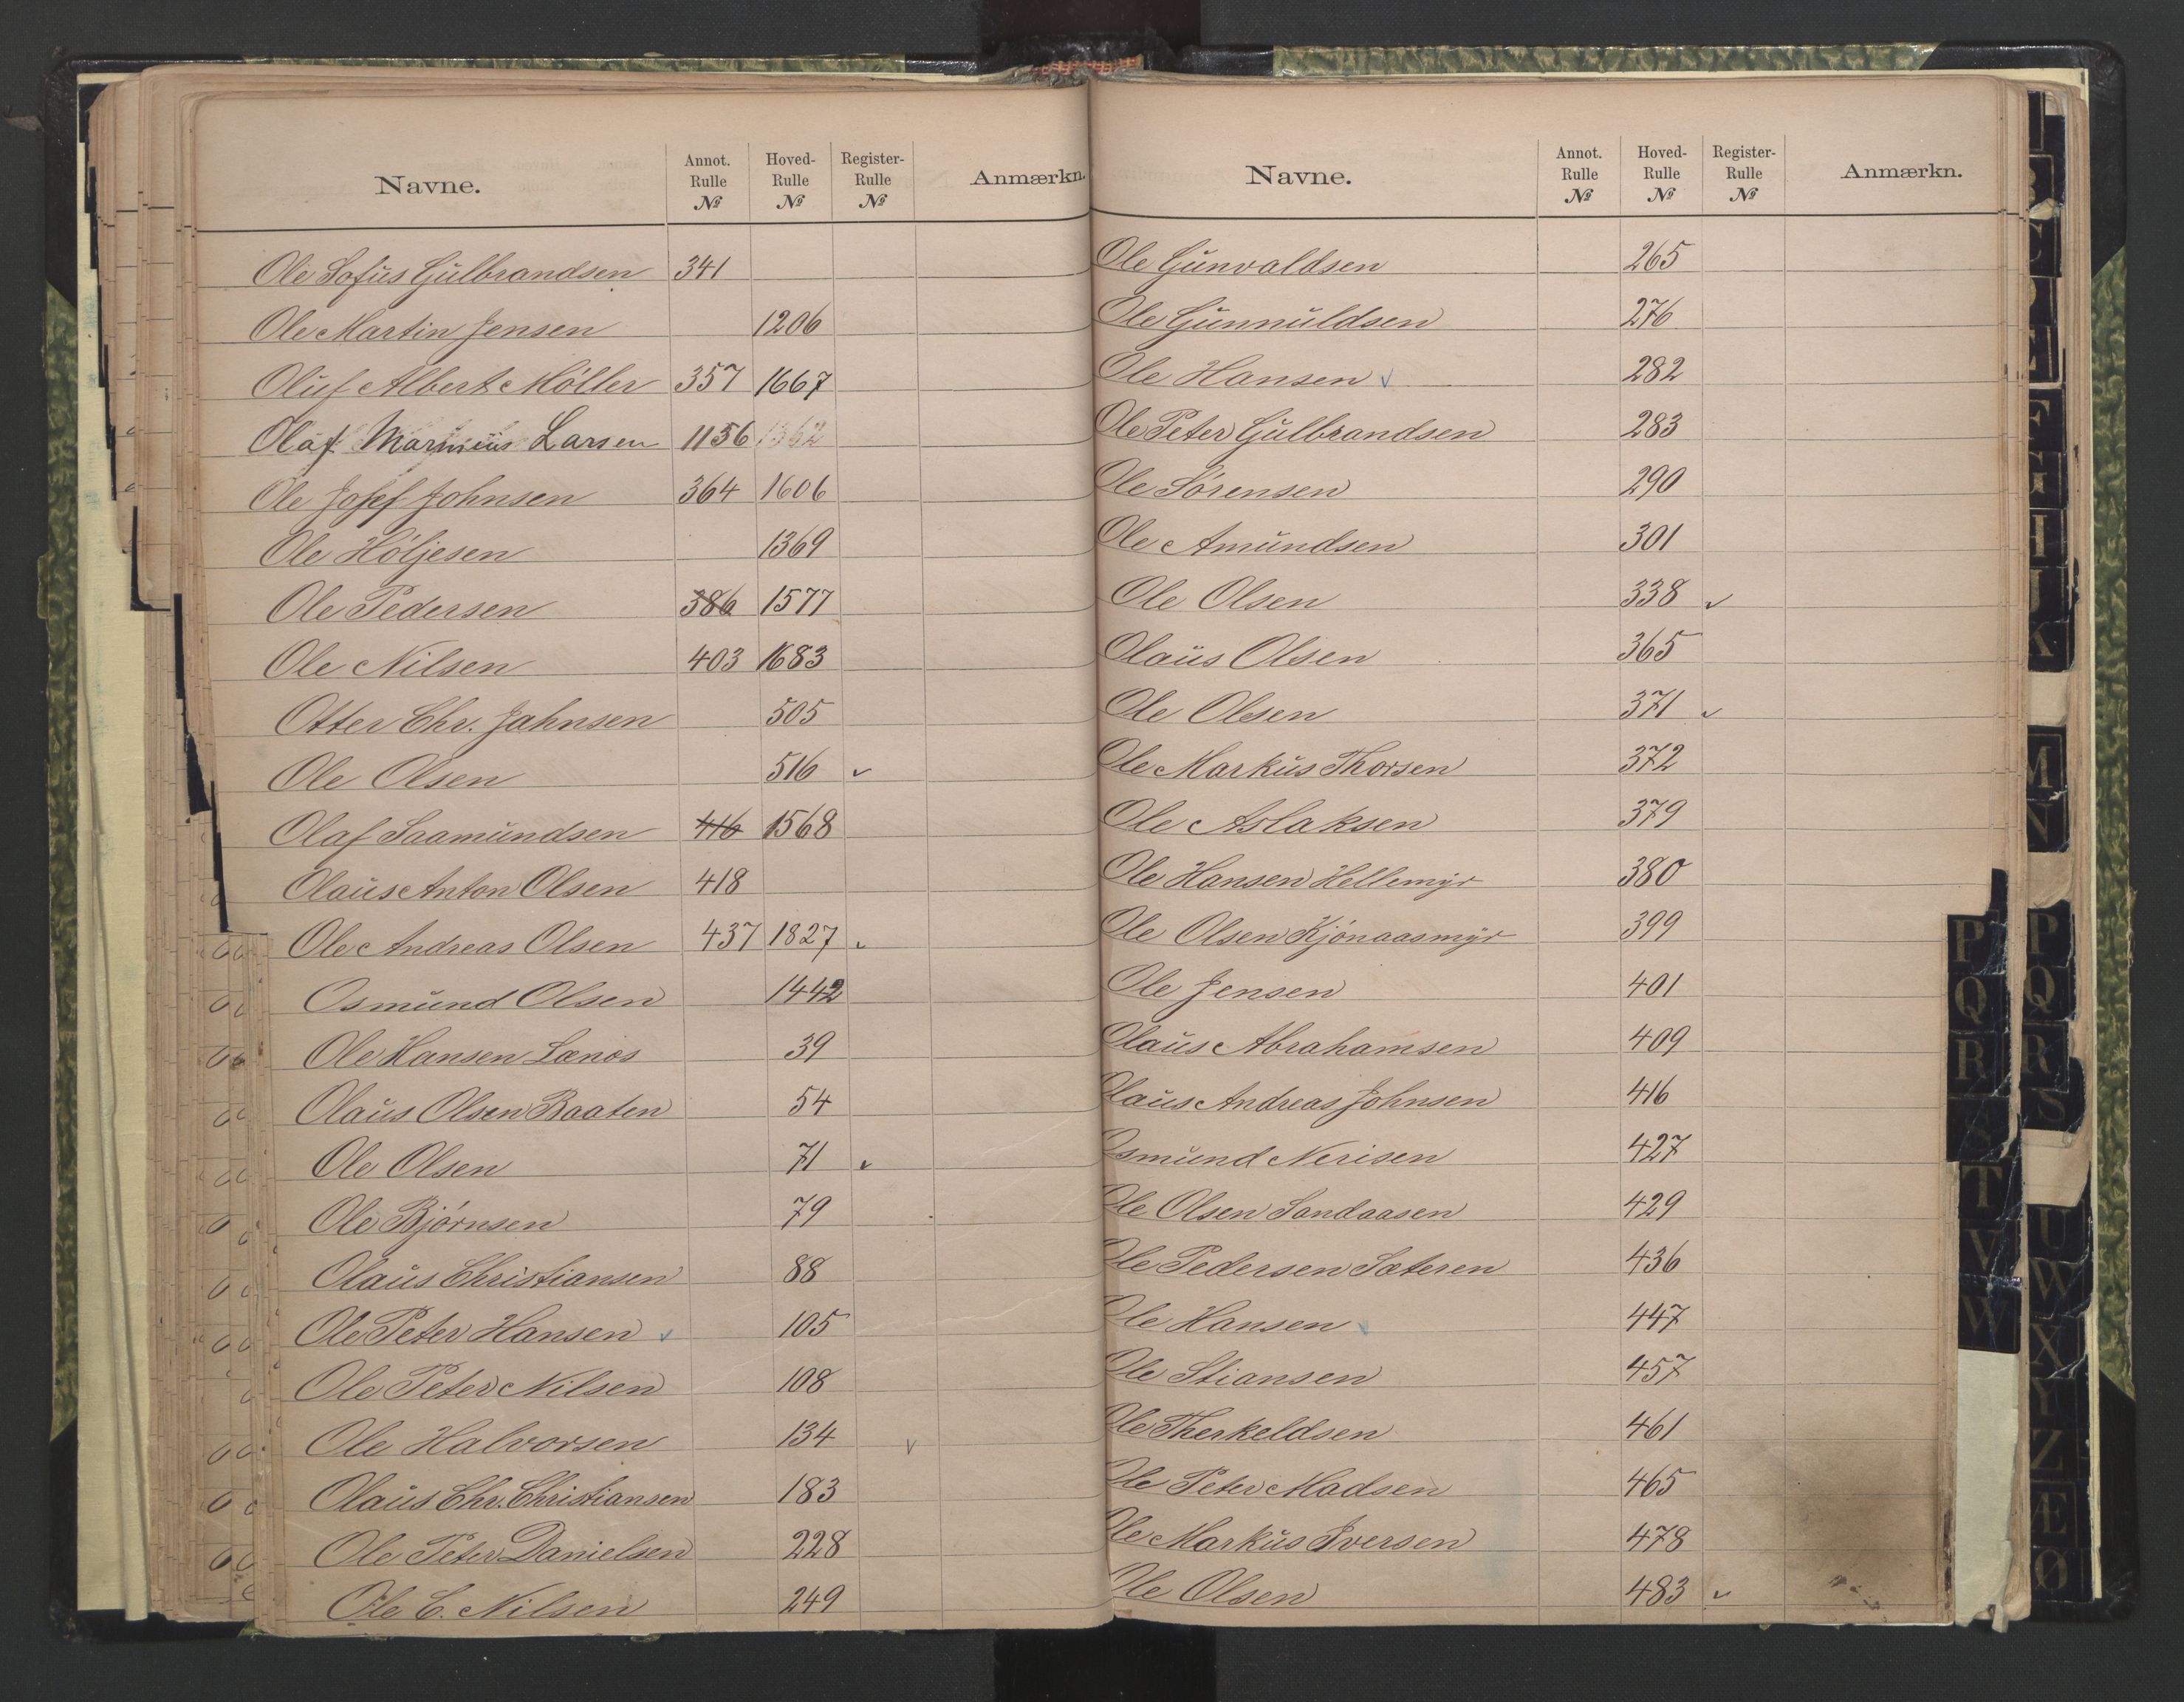 Navne. Annot. Rulle № Hoved- Rulle № Register- Rulle № Anmærkn.
Ole Sofus Gulbrandsen 341
Ole Martin Jensen 1206
Oluf Albert Möller 357 1667
Olaf Marinius Larsen 1156 1362
Ole Josef Johnsen 364 1606
Ole Höljesen 1369
Ole Pedersen 386 1577
Ole Nilsen 403 1683
Otter Chr. Jahnsen 505
Ole Olsen 516 ✓
Olaf Saamundsen 416 1568
Olaus Anton Olsen 418
Ole Andreas Olsen 437 1827 ✓
Osmund Olsen 1442
Ole Hansen Lænes 39
Olaus Olsen Baaten 54
Ole Olsen 71 ✓
Ole Björnsen 79
Olaus Christiansen 88
Ole Peter Hansen ✓ 105
Ole Peter Nilsen 108
Ole Halvorsen 134 ✓
Olaus Chr. Christiansen 183
Ole Peter Danielsen 228
Ole C. Nilsen 249
Navne. Annot. Rulle № Hoved- Rulle № Register- Rulle № Anmærkn.
Ole Gunvaldsen 265
Ole Gunnuldsen 276
Ole Hansen ✓ 282
Ole Peter Gulbrandsen 283
Ole Sörensen 290
Ole Amundsen 301
Ole Olsen 338 ✓
Olaus Olsen 365
Ole Olsen 371 ✓
Ole Markus Thorsen 372
Ole Aslaksen 379
Ole Hansen Hellemyr 380
Ole Olsen Kjönaasmyr 399
Ole Jensen 401
Olaus Abrahamsen 409
Olaus Andreas Johnsen 416
Osmund Nerisen 427
Ole Olsen Sandaasen 429
Ole Pedersen Sæteren 436
Ole Hansen ✓ 447
Ole Stiansen 457
Ole Therkeldsen 461
Ole Peter Madsen 465
Ole Markus Iversen 478
Ole Olsen 483 ✓
P
Q
R
S
T
V
W
B
C
D
E
F
G
H
J
K
M
N
P
Q
R
S
U
W
X
Y
Z
Æ
Ø